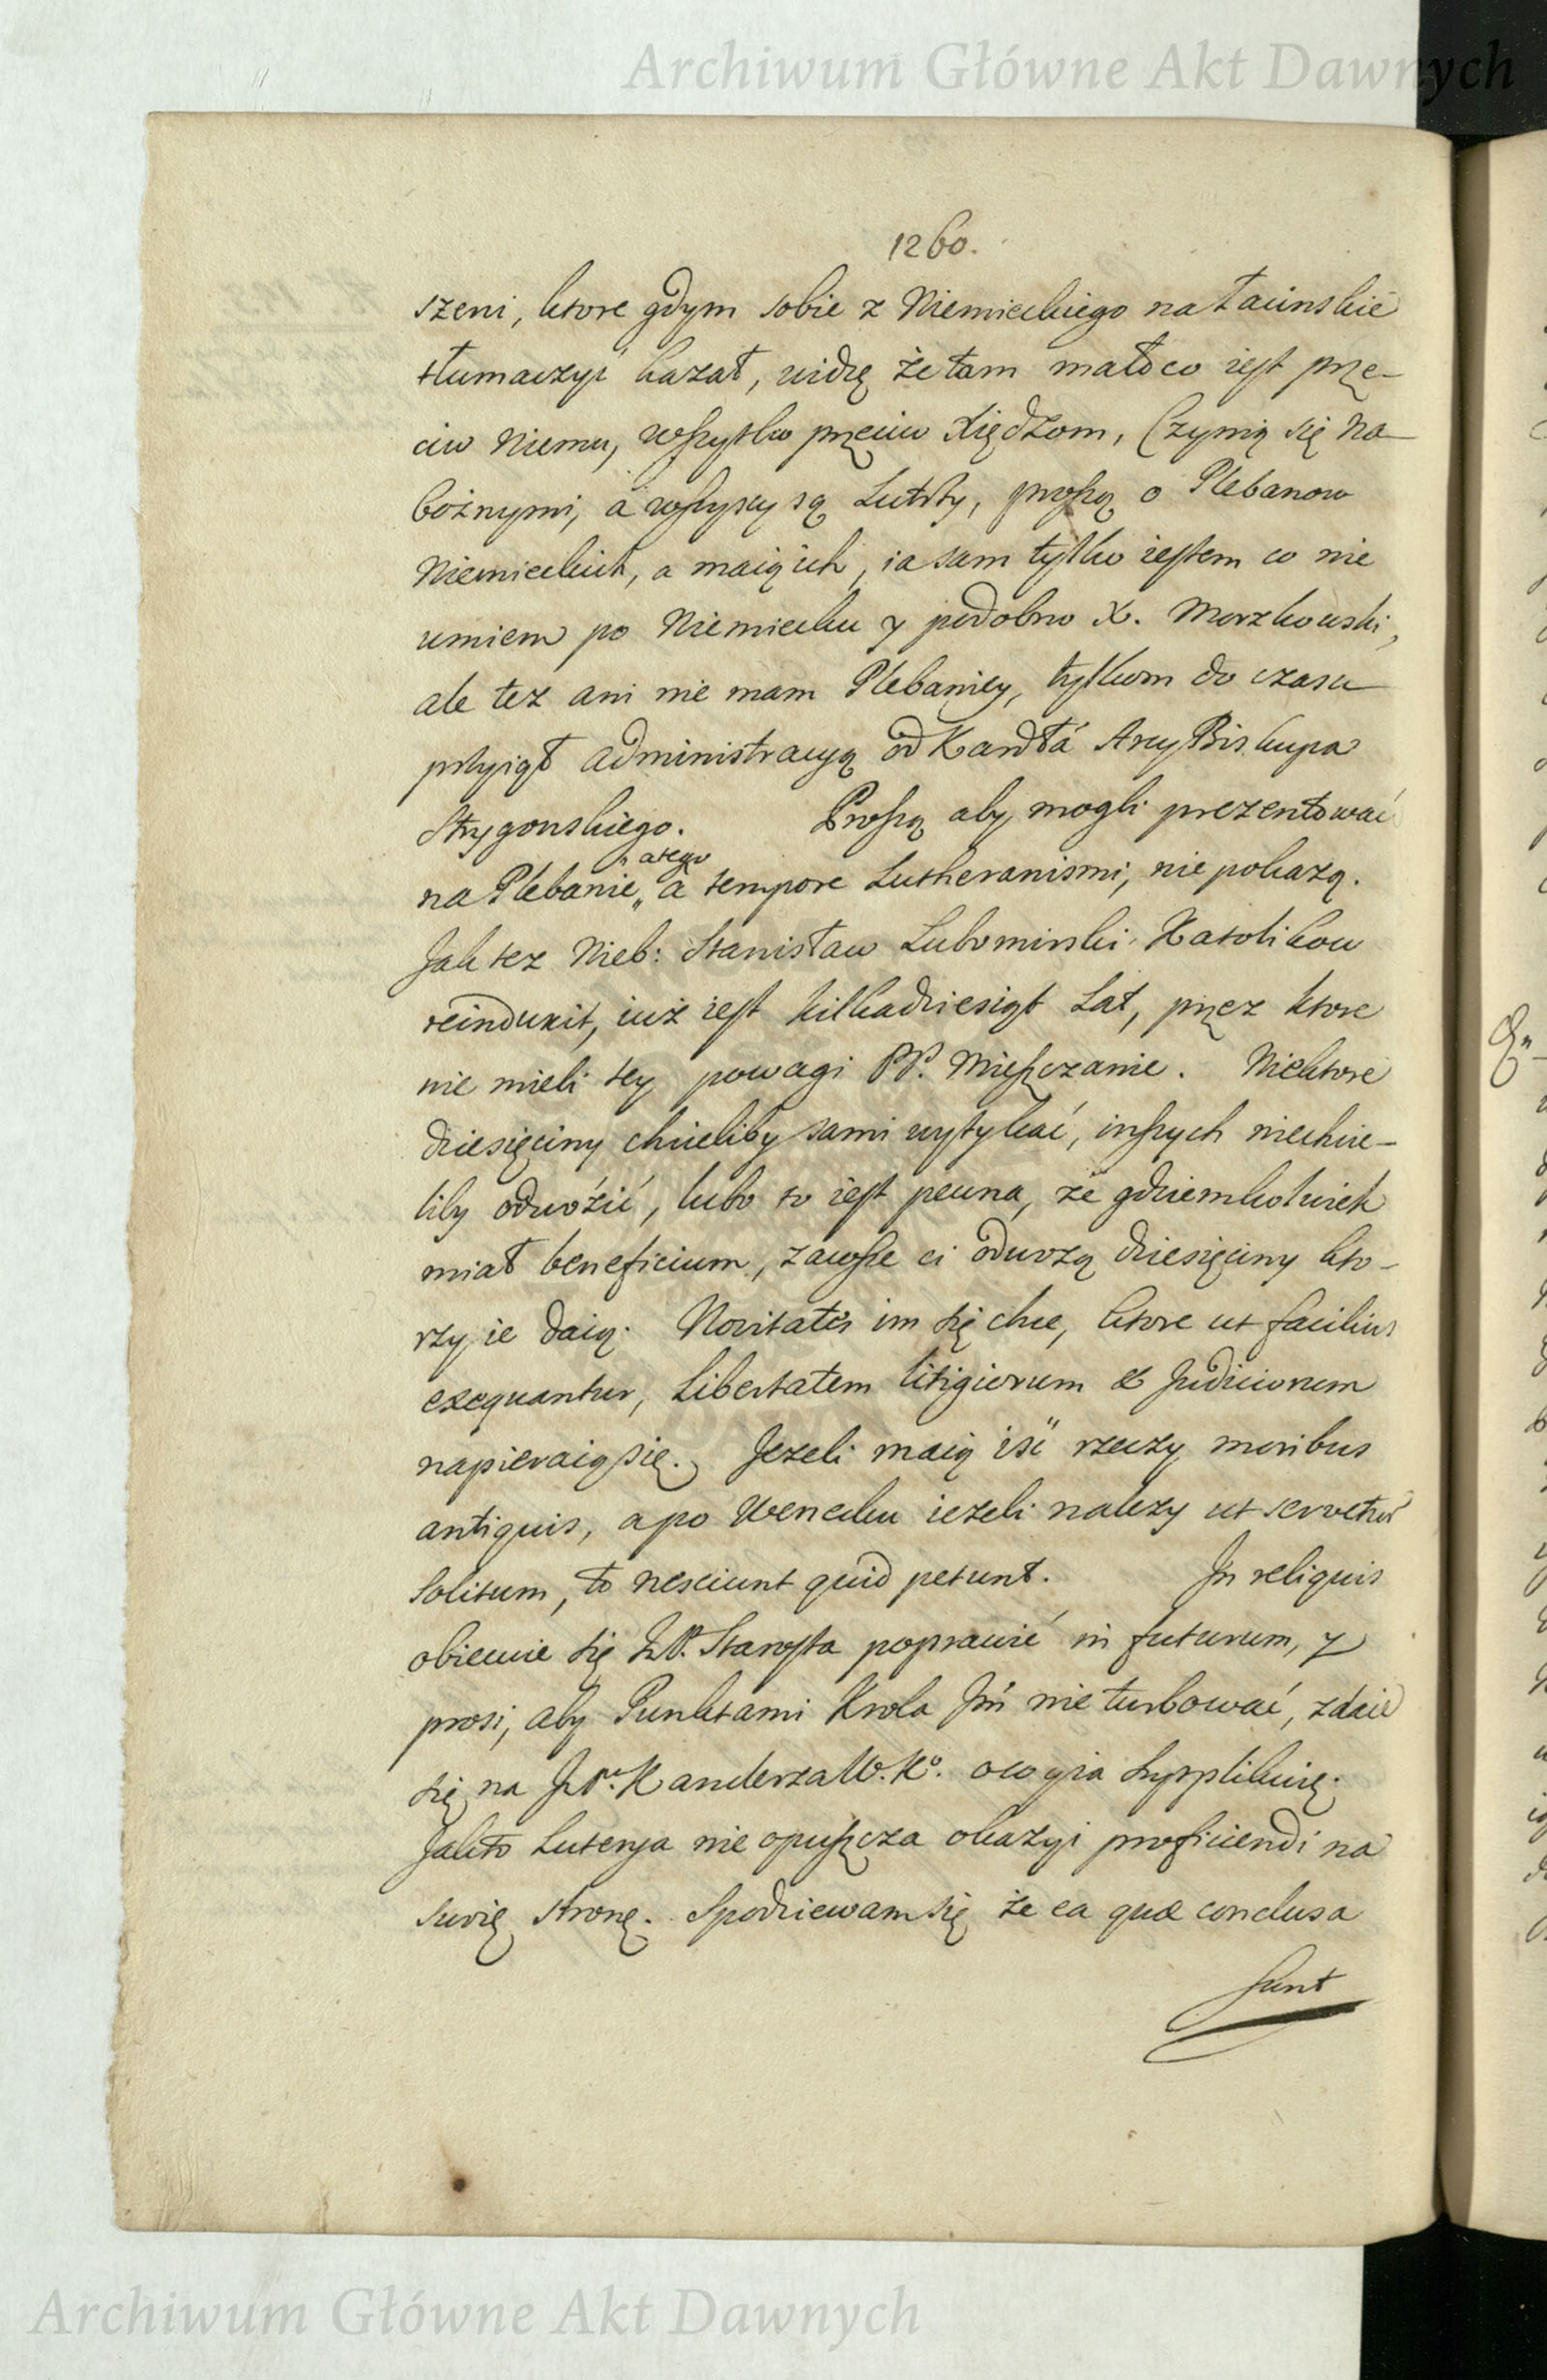 Archiwum Główne Akt Dawnych
1260.
szeni, ktore gdym sobie z Niemieckiego na Łacinskie
tłumaczyć kazał, widzę że tam małoco iest prze-
ciw Niemu, wszytko przeciw Xiędzom, Czynią się na-
bożnymi, a wszyscy są Lutrzy, proszą o Plebanow
Niemieckich, a maią ich, ia sam tylko iestem co nie
umiem po Niemiecku y podobno X. Morzkowski,
ale tez ani nie mam Plebaniey, tylkom do czasu
przyiął administracyą od Kardła ArcyBiskupa
Strygonskiego. Proszą aby mogli prezentować
na Plebanie „ a tego a tempore Lutheranismi, nie pokazą.
Jak tez Nieb: Stanisław Lubomirski Katolikow
reinduxit, iuż iest kilkadziesiąt Lat, przez ktore
nie mieli tey powagi PP. Mieszczanie. Niektore
dziesięciny chcieliby sami wytykać, inszych niechcie-
liby odwozić, lubo to iest pewna, że gdziemkolwiek
miał beneficium, zawsze ci odwozą dziesięciny kto-
rzy ie daią. Novitates im się chce, ktore ut facilius
exequantur, Libertatem litigiorum & Judiciorum
napieraią się. Jezeli maią iść rzeczy moribus
antiquis, a po Wenecku iezeli nalezy ut servetur
Solitum, to nesciunt quid petunt. In reliquis
obiecuie się J.P. Starosta poprawić in futurum, y
prosi, aby Punktami Krola Jm̃ nie turbować, zdaie
się na J. Pa. Kanclerza W. Ko. o co y ia supplikuię.
Jakto Luterya nie opuszcza okazyi proficiendi na
swoię stronę. Spodziewam się że ea quæ conclusa
sunt
Archiwum Główne Akt Dawnych